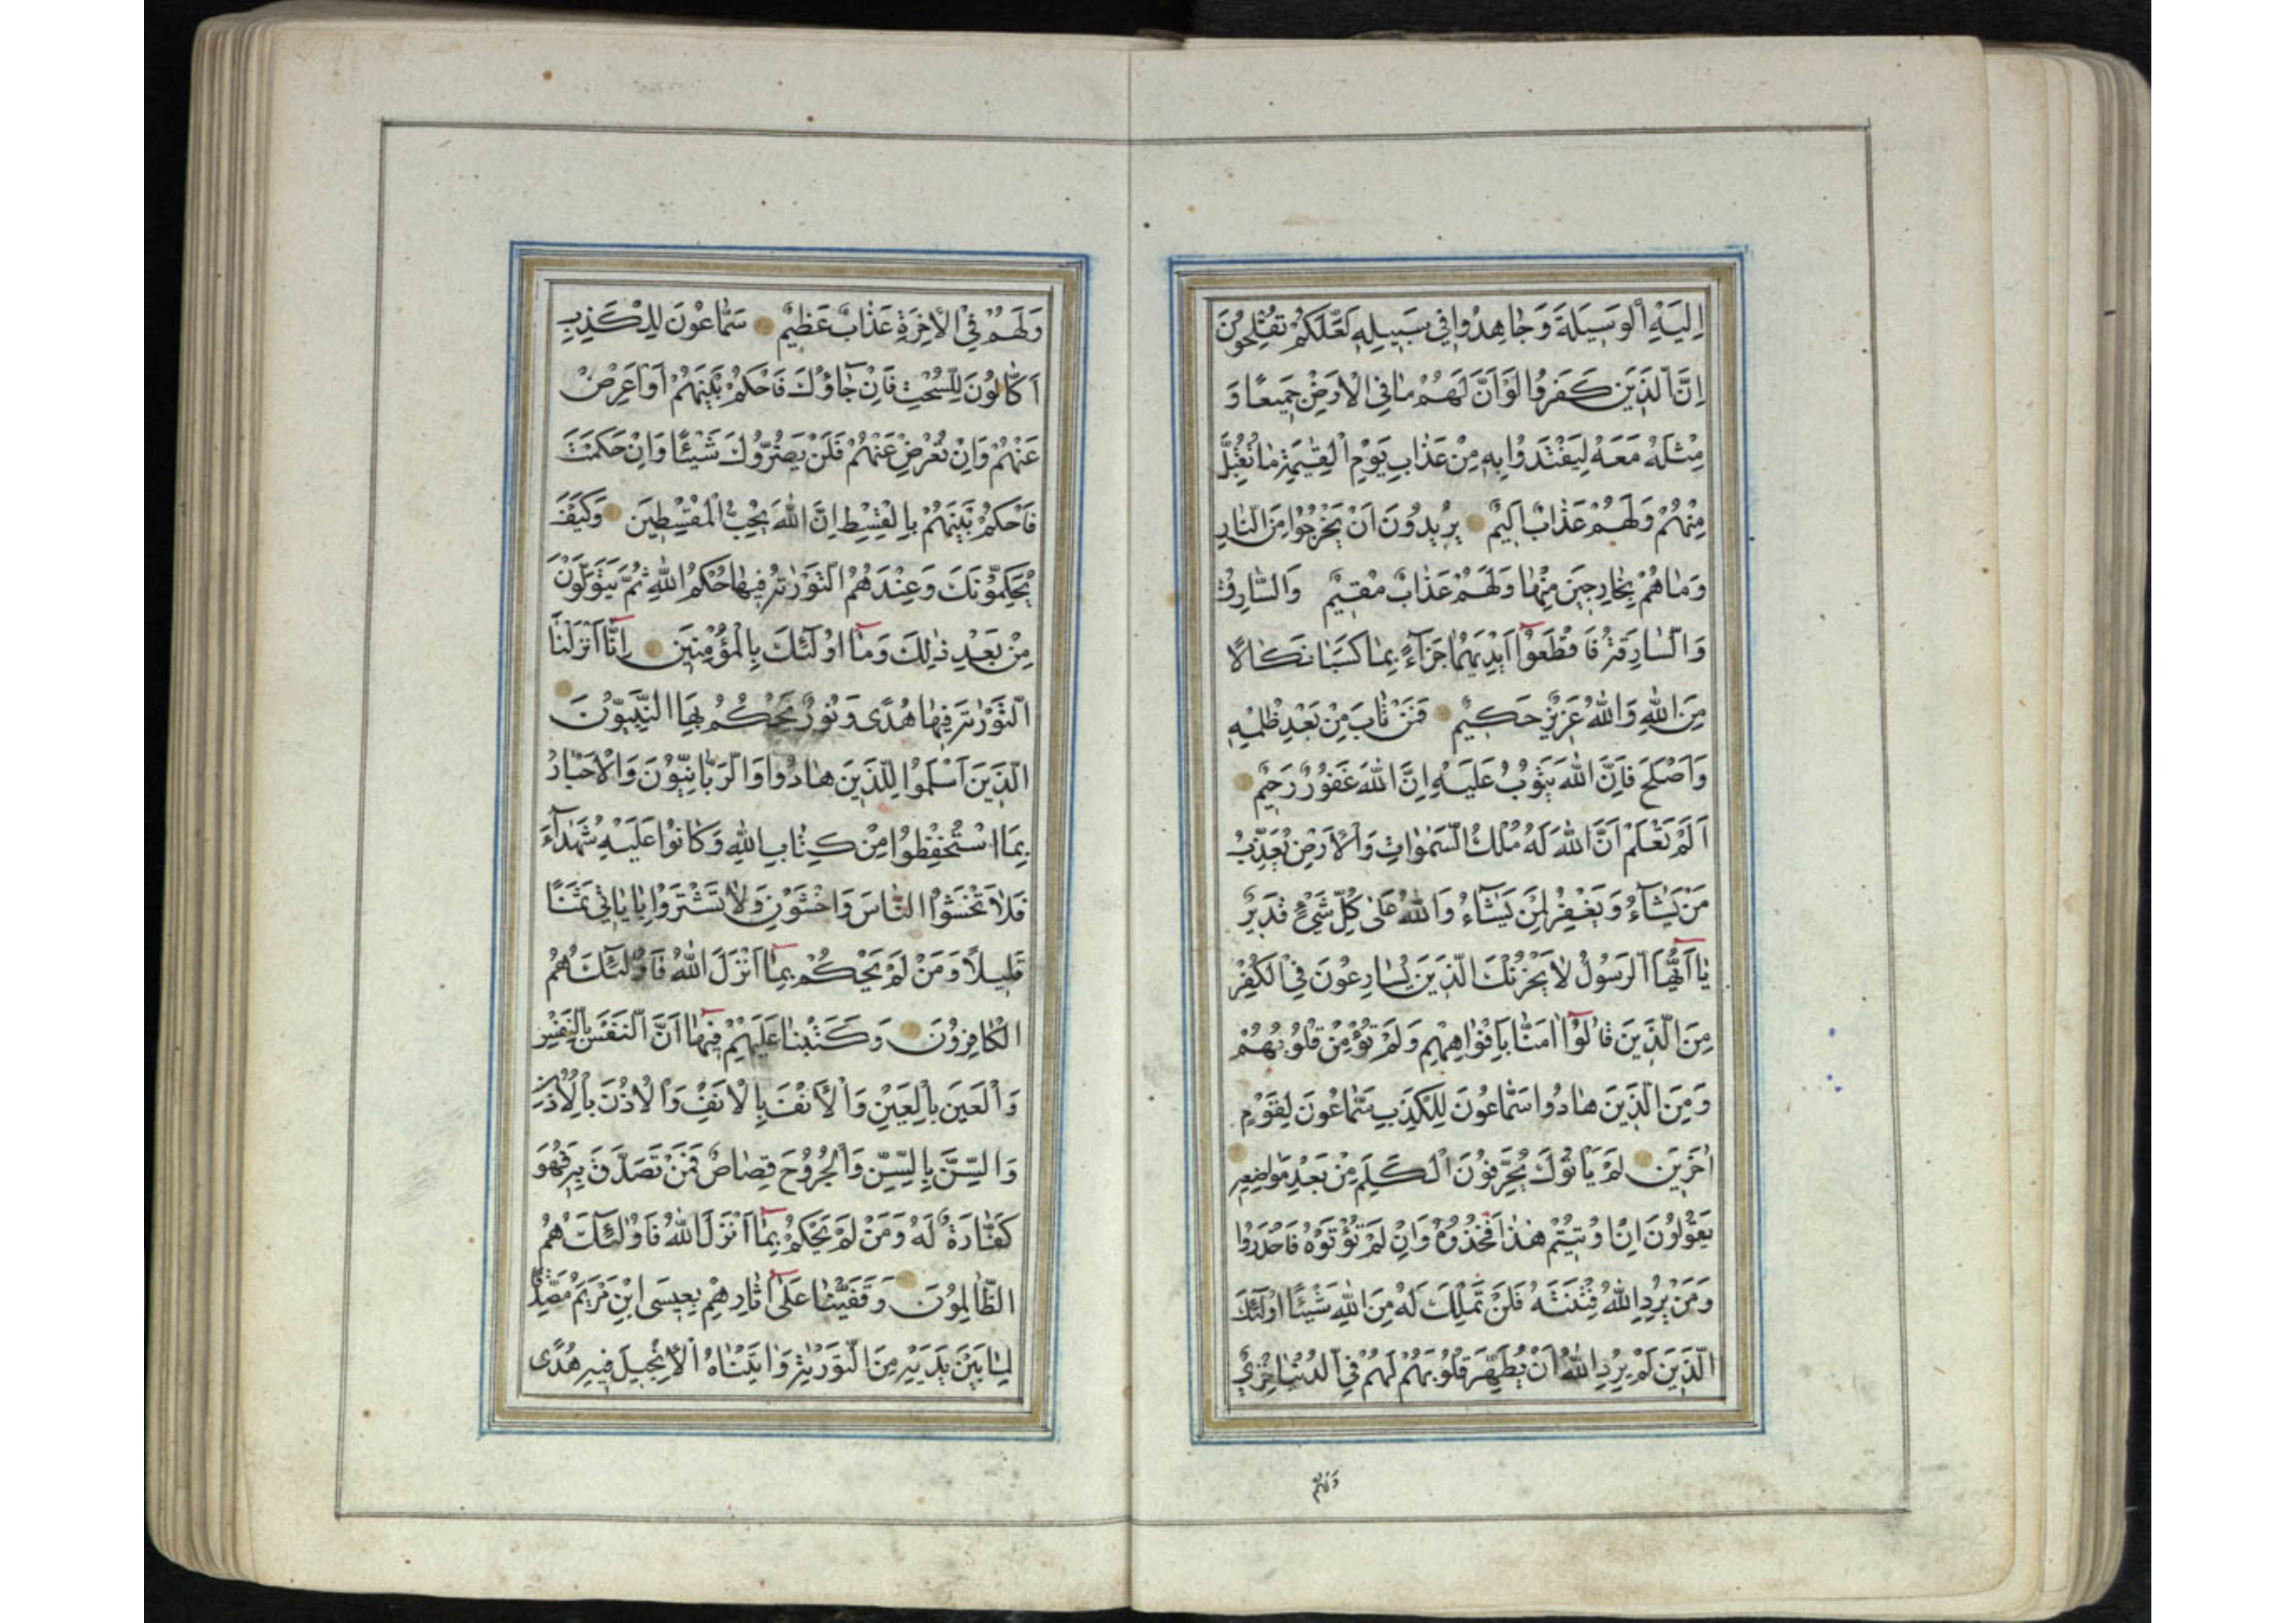 اِلَيْهِ الْوَسِيلَةَ وَجَاهِدُوا فِي سَبِيلِهِ لَعَلَّكُمْ تُفْلِحُونَ
اِنَّ الَّذِينَ كَفَرُوا لَوْ اَنَّ لَهُمْ مَا فِي الْاَرْضِ جَمِيعًا وَ
مِثْلَهُ مَعَهُ لِيَفْتَدُوا بِهِ مِنْ عَذَابِ يَوْمِ الْقِيٰمَةِ مَا تُقُبِّلَ
مِنْهُمْ وَلَهُمْ عَذَابٌ اَلِيمٌ يُرِيدُونَ اَنْ يَخْرُجُوا مِنَ النَّارِ
وَمَا هُمْ بِخَارِجِينَ مِنْهَا وَلَهُمْ عَذَابٌ مُقِيمٌ وَالسَّارِقُ
وَالسَّارِقَةُ فَاقْطَعُوا اَيْدِيَهُمَا جَزَآءً بِمَا كَسَبَا نَكَالًا
مِنَ اللّٰهِ وَاللّٰهُ عَزِيزٌ حَكِيمٌ فَمَنْ تَابَ مِنْ بَعْدِ ظُلْمِهِ
وَاَصْلَحَ فَاِنَّ اللّٰهَ يَتُوبُ عَلَيْهِ اِنَّ اللّٰهَ غَفُورٌ رَحِيمٌ
اَلَمْ تَعْلَمْ اَنَّ اللّٰهَ لَهُ مُلْكُ السَّمٰوَاتِ وَالْاَرْضِ يُعَذِّبُ
مَنْ يَشَآءُ وَيَغْفِرُ لِمَنْ يَشَآءُ وَاللّٰهُ عَلٰى كُلِّ شَيْءٍ قَدِيرٌ
يَا اَيُّهَا الرَّسُولُ لَا يَحْزُنْكَ الَّذِينَ يُسَارِعُونَ فِي الْكُفْرِ
مِنَ الَّذِينَ قَالُوا اٰمَنَّا بِاَفْوَاهِهِمْ وَلَمْ تُؤْمِنْ قُلُوبُهُمْ
وَمِنَ الَّذِينَ هَادُوا سَمَّاعُونَ لِلْكَذِبِ سَمَّاعُونَ لِقَوْمٍ
اٰخَرِينَ لَمْ يَاْتُوكَ يُحَرِّفُونَ الْكَلِمَ مِنْ بَعْدِ مَوَاضِعِهِ
يَقُولُونَ اِنْ اُوتِيتُمْ هٰذَا فَخُذُوهُ وَاِنْ لَمْ تُؤْتَوْهُ فَاحْذَرُوا
وَمَنْ يُرِدِ اللّٰهُ فِتْنَتَهُ فَلَنْ تَمْلِكَ لَهُ مِنَ اللّٰهِ شَيْئًا اُولٰئِكَ
الَّذِينَ لَمْ يُرِدِ اللّٰهُ اَنْ يُطَهِّرَ قُلُوبَهُمْ لَهُمْ فِي الدُّنْيَا خِزْيٌ
وَلَهُمْ
وَلَهُمْ فِي الْاٰخِرَةِ عَذَابٌ عَظِيمٌ سَمَّاعُونَ لِلْكَذِبِ
اَكَّالُونَ لِلسُّحْتِ فَاِنْ جَآؤُكَ فَاحْكُمْ بَيْنَهُمْ اَوْ اَعْرِضْ
عَنْهُمْ وَاِنْ تُعْرِضْ عَنْهُمْ فَلَنْ يَضُرُّوكَ شَيْئًا وَاِنْ حَكَمْتَ
فَاحْكُمْ بَيْنَهُمْ بِالْقِسْطِ اِنَّ اللّٰهَ يُحِبُّ الْمُقْسِطِينَ وَكَيْفَ
يُحَكِّمُونَكَ وَعِنْدَهُمُ التَّوْرٰيةُ فِيهَا حُكْمُ اللّٰهِ ثُمَّ يَتَوَلَّوْنَ
مِنْ بَعْدِ ذٰلِكَ وَمَا اُولٰئِكَ بِالْمُؤْمِنِينَ اِنَّا اَنْزَلْنَا
التَّوْرٰيةَ فِيهَا هُدًى وَنُورٌ يَحْكُمُ بِهَا النَّبِيُّونَ
الَّذِينَ اَسْلَمُوا لِلَّذِينَ هَادُوا وَالرَّبَّانِيُّونَ وَالْاَحْبَارُ
بِمَا اسْتُحْفِظُوا مِنْ كِتَابِ اللّٰهِ وَكَانُوا عَلَيْهِ شُهَدَآءَ
فَلَا تَخْشَوُا النَّاسَ وَاخْشَوْنِ وَلَا تَشْتَرُوا بِاٰيَاتِي ثَمَنًا
قَلِيلًا وَمَنْ لَمْ يَحْكُمْ بِمَا اَنْزَلَ اللّٰهُ فَاُولٰئِكَ هُمُ
الْكَافِرُونَ وَكَتَبْنَا عَلَيْهِمْ فِيهَا اَنَّ النَّفْسَ بِالنَّفْسِ
وَالْعَيْنَ بِالْعَيْنِ وَالْاَنْفَ بِالْاَنْفِ وَالْاُذُنَ بِالْاُذُنِ
وَالسِّنَّ بِالسِّنِّ وَالْجُرُوحَ قِصَاصٌ فَمَنْ تَصَدَّقَ بِهِ فَهُوَ
كَفَّارَةٌ لَهُ وَمَنْ لَمْ يَحْكُمْ بِمَا اَنْزَلَ اللّٰهُ فَاُولٰئِكَ هُمُ
الظَّالِمُونَ وَقَفَّيْنَا عَلٰى اٰثَارِهِمْ بِعِيسَى ابْنِ مَرْيَمَ مُصَدِّقًا
لِمَا بَيْنَ يَدَيْهِ مِنَ التَّوْرٰيةِ وَاٰتَيْنَاهُ الْاِنْجِيلَ فِيهِ هُدًى